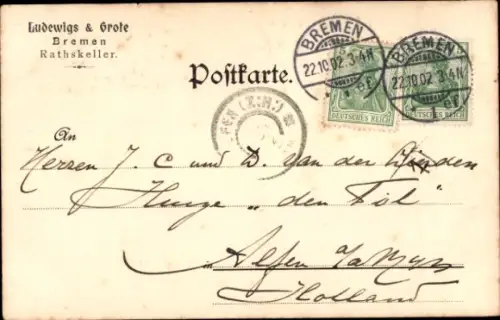 Ludewigs & Grote
Bremen
Rathskeller.
BREMEN
22.10.02 3-4N
BREMEN
22.10.02 3-4N
DEUTSCHES REICH
DEUTSCHES REICH
Postkarte.
An
Herren J. C und D. van der
Huize „den Tol"
Alfen
Holland